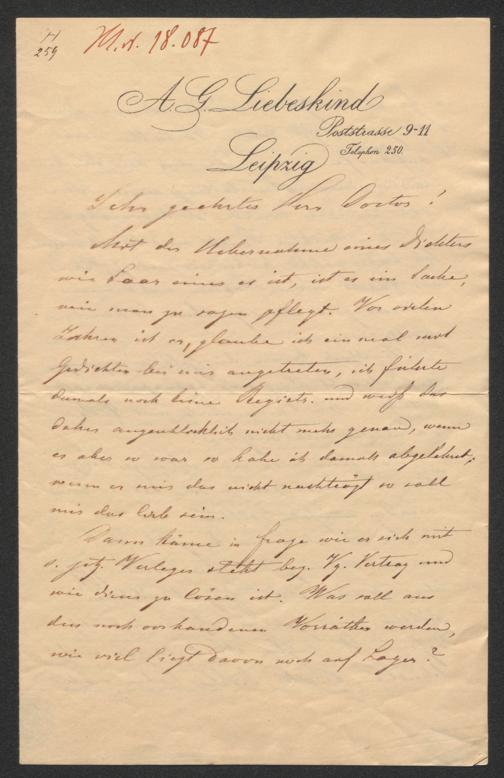 H
259
M.N. 18.087
A. G. Liebeskind
Poststrasse 9-11
Telephon 250.
Leipzig
Sehr geehrter Herr Doctor!
Mit der Uebernahme eines Dichters
wie Saar eines es ist, ist es ein Sache,
wie man zu sagen pflegt. Vor vielen
Jahren ist er, glaube ich einmal mit
Gedichten bei mir angetreten, ich führte
damals noch keine Registr. und weiß das
daher augenblicklich nicht mehr genau, wenn
es aber so war so habe ich damals abgelehnt;
wenn er mir das nicht nachträgt so soll
mir das lieb sein.
Dann käme in Frage wie er sich mit
s. jetz. Verleger steht bez. Vg. Vertrag und
wie dieser zu lösen ist. Was soll aus
den noch vorhandenen Vorräthen werden,
wie viel liegt davon noch auf Lager?